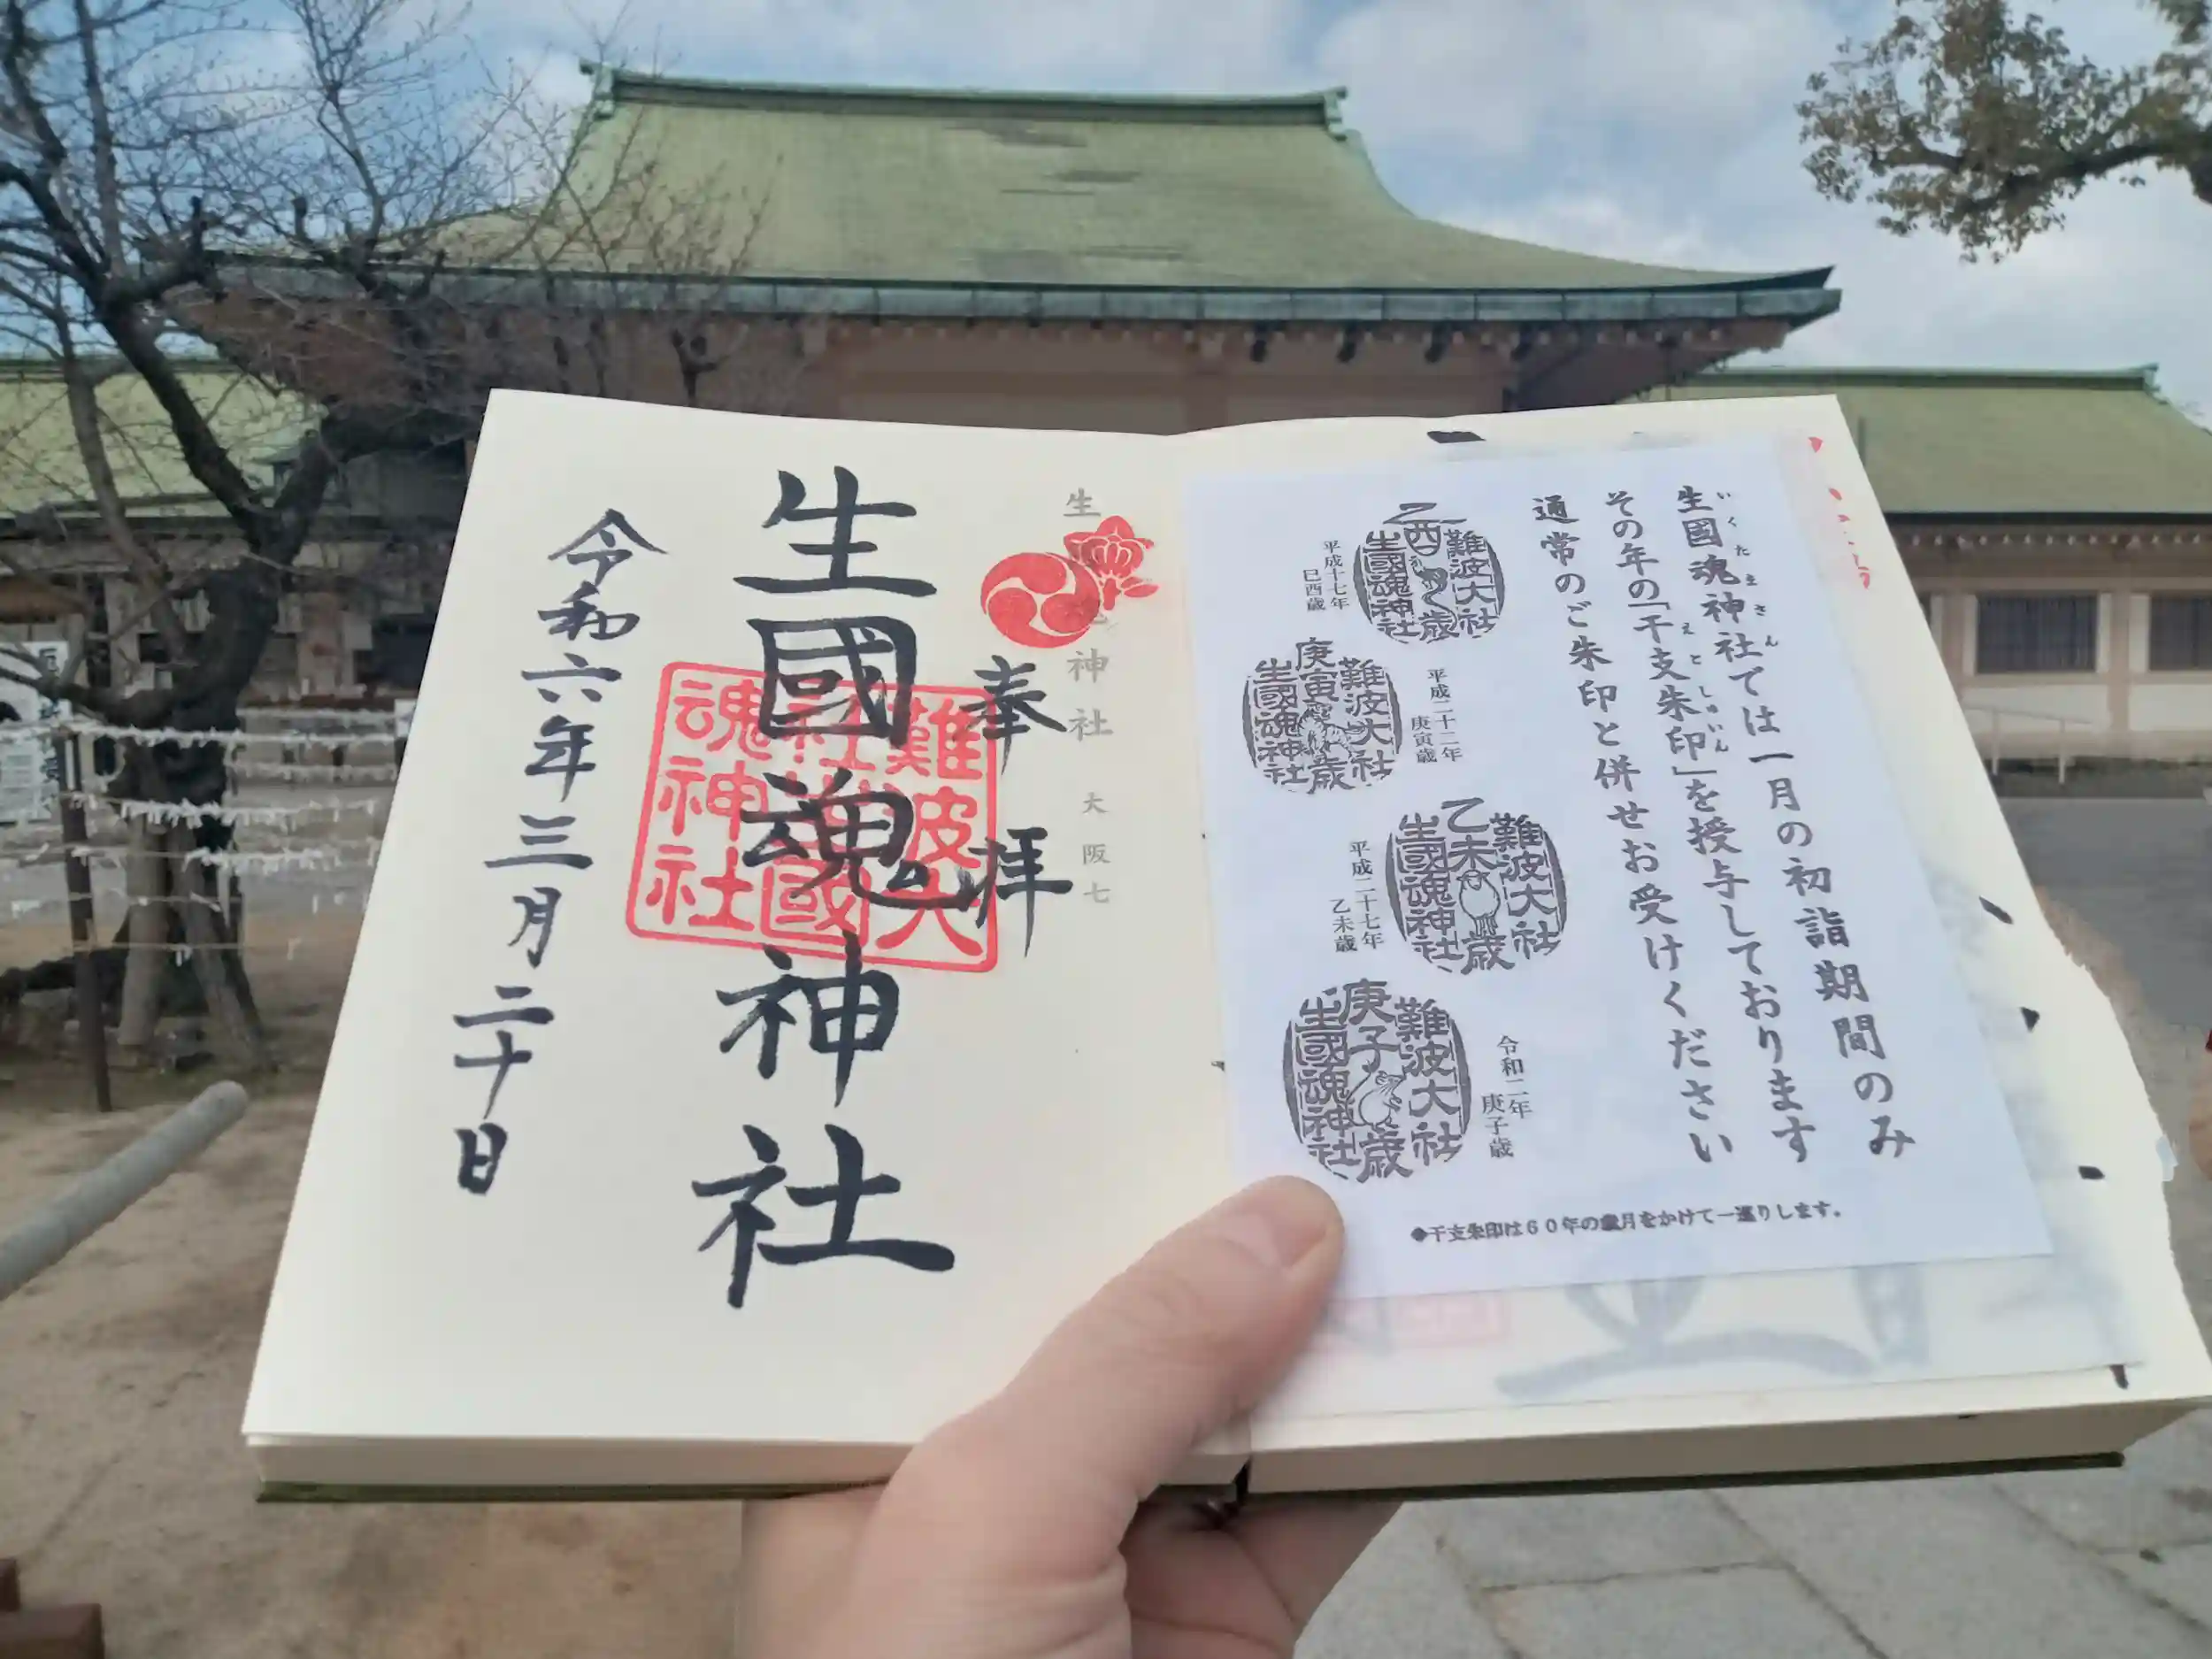 生國魂神社では一月の初詣期間のみ
いくたまさん
その年の「干支朱印」を授与しております
えとしゅいん
通常のご朱印と併せお受けください
乙酉歳
難波大社
生國魂神社
平成十七年
巳酉歳
庚寅歳
難波大社
生國魂神社
平成二十二年
庚寅歳
乙未歳
難波大社
生國魂神社
平成二十七年
乙未歳
庚子歳
難波大社
生國魂神社
令和二年
庚子歳
◆干支朱印は60年の歳月をかけて一巡りします。
生
神社 大阪七
奉拝
生國魂神社
難波大社
生國魂神社
令和六年三月二十日